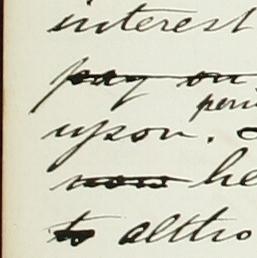 interest
pay on
peri
upon.
now he
to altho